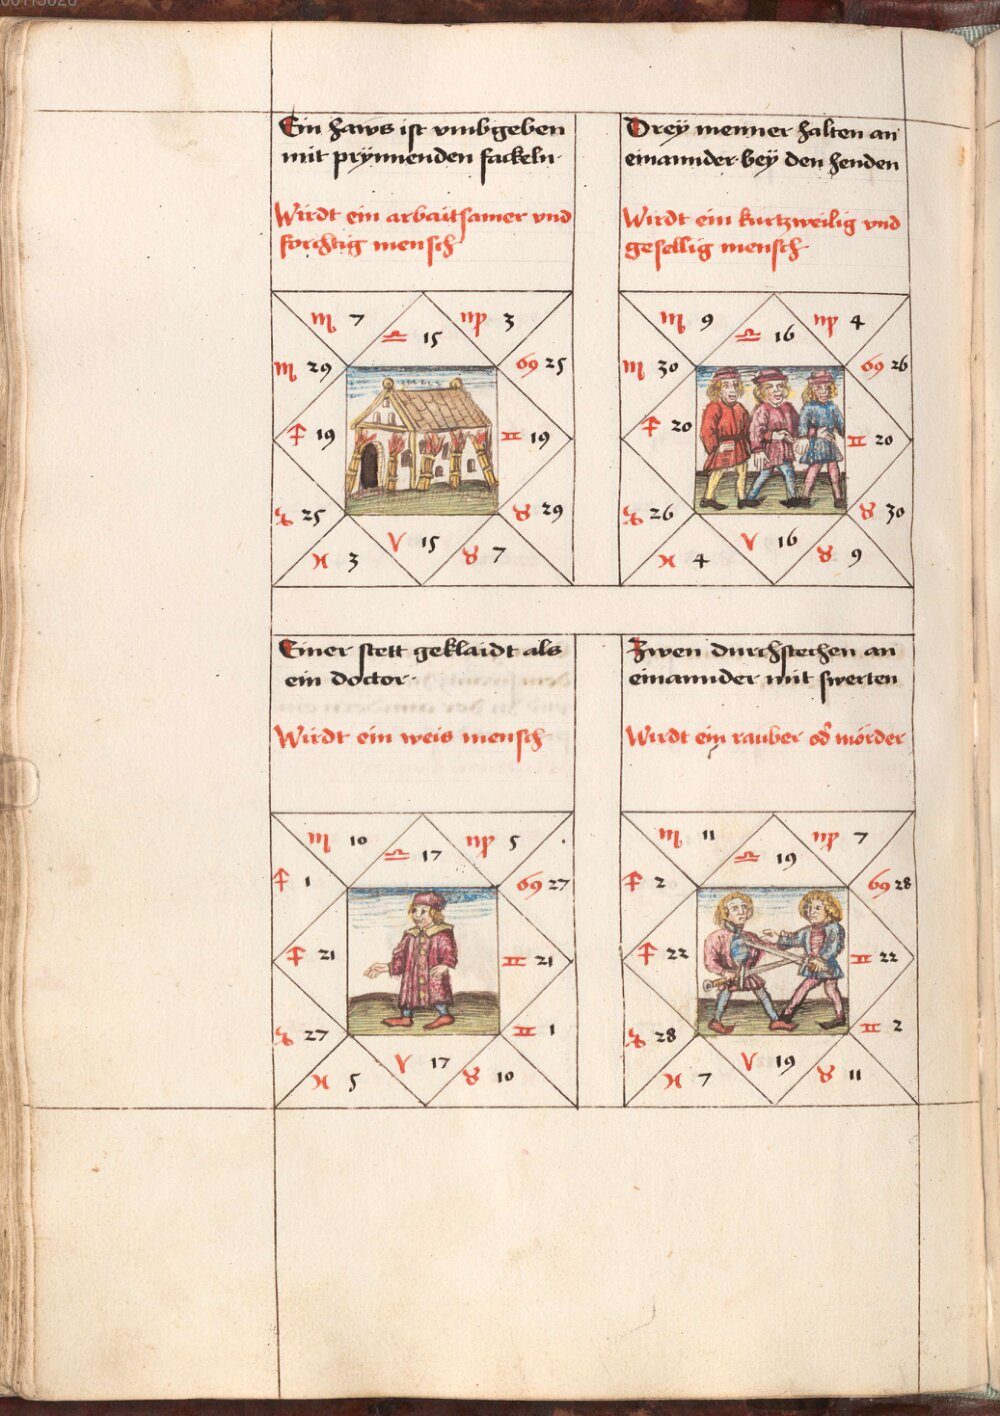 Ein haws ist vmbgeben
mit prÿnnenden fackeln·
Wirdt ein arbaitsamer vnd
forchtig mensch
♏ 7
♎ 15
♍ 3
♏ 29
♋ 25
♐ 19
♊ 19
♑ 25
♉ 29
♓ 3
♈ 15
♉ 7
Dreÿ menner halten an
einannder beÿ den henden
Wirdt ein kurtzweilig vnd
gesellig mensch
♏ 9
♎ 16
♍ 4
♏ 30
♋ 26
♐ 20
♊ 20
♑ 26
♉ 30
♓ 4
♈ 16
♉ 9
Einer stett geklaidt als
ein doctor·
Wirdt ein weis mensch
♏ 10
♎ 17
♍ 5
♐ 1
♋ 27
♐ 21
♊ 21
♑ 27
♊ 1
♓ 5
♈ 17
♉ 10
Zwen durchstechen an
einannder mit swerten
Wirdt ein rauber od̄ mörder
♏ 11
♎ 19
♍ 7
♐ 2
♋ 28
♐ 22
♊ 22
♑ 28
♊ 2
♓ 7
♈ 19
♉ 11